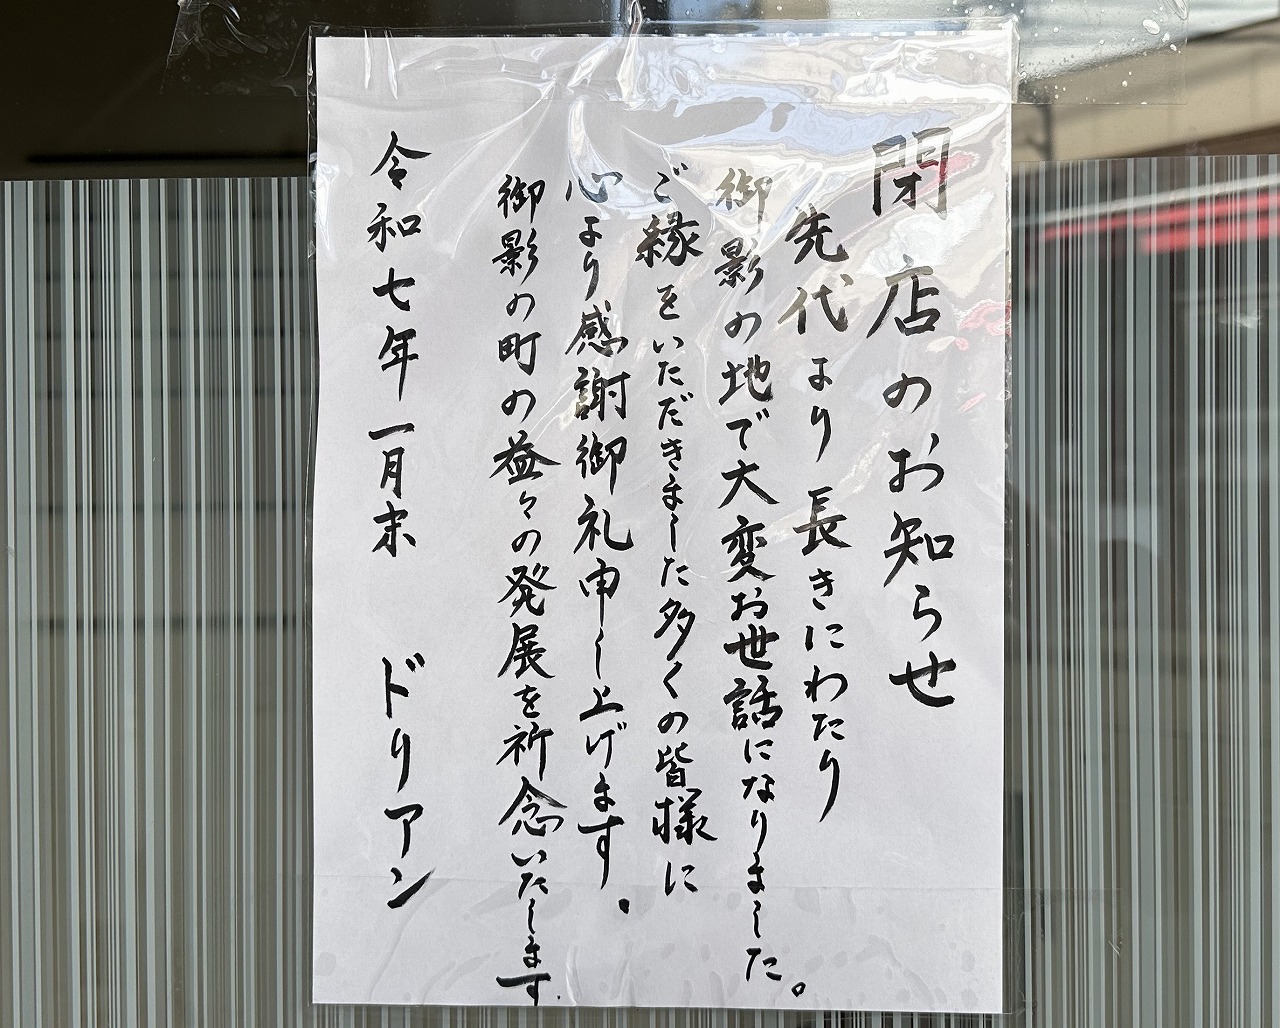 閉店のお知らせ
先代より長きにわたり
御影の地で大変お世話になりました。
ご縁をいただきました多くの皆様に
心より感謝御礼申し上げます。
御影の町の益々の発展を祈念いたします.
令和七年一月末 ドリアン